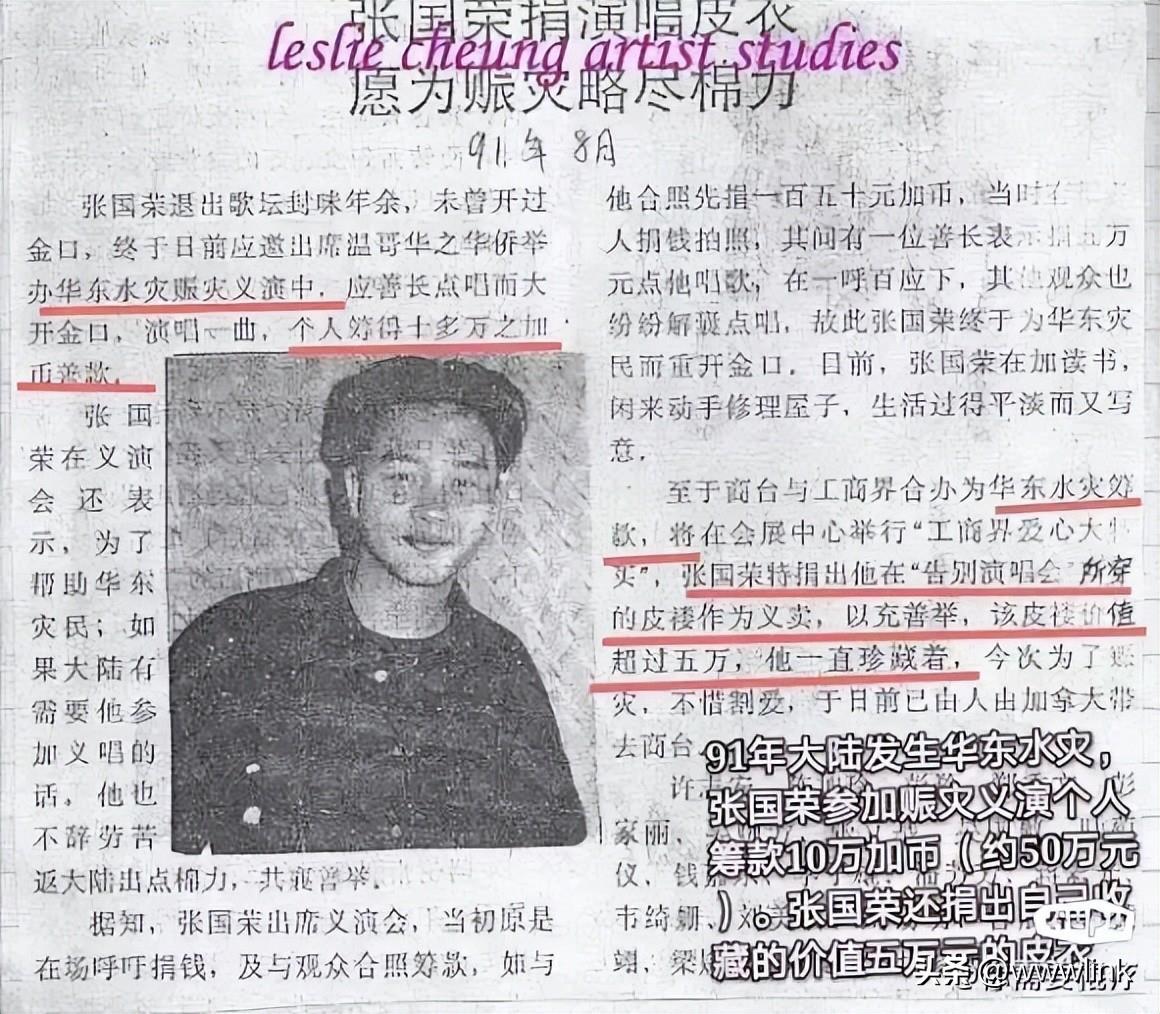 张国荣捐演唱皮衣
leslie cheung artist studies
愿为赈灾略尽棉力
91年 8月
张国荣退出歌坛封咪年余，未曾开过
金口，终于日前应邀出席温哥华之华侨举
办华东水灾赈灾义演中，应善长点唱而大
开金口，演唱一曲，个人筹得十多万之加
币善款。
张国
荣在义演
会还表
示，为了
帮助华东
灾民；如
果大陆有
需要他参
加义唱的
话，他也
不辞劳苦
返大陆出点棉力，共襄善举。
据知，张国荣出席义演会，当初原是
在场呼吁捐钱，及与观众合照筹款，如与
他合照先捐一百五十元加币，当时
人捐钱拍照，其间有一位善长表示捐五万
元点他唱歌，在一呼百应下，其他观众也
纷纷解囊点唱，故此张国荣终于为华东灾
民而重开金口．目前，张国荣在加读书，
闲来动手修理屋子，生活过得平淡而又写
意．
至于商台与工商界合办为华东水灾筹
款，将在会展中心举行“工商界爱心大
”，张国荣特捐出他在“告别演唱会 所穿
的皮褛作为义卖，以充善举，该皮褛价值
超过五万，他一直珍藏着，今次为了赈
灾，不惜割爱，于日前已由人由加拿大带
去商台
许
家丽，
仪，钱
韦绮姗、
翊，梁
91年大陆发生华东水灾，
张国荣参加赈灾义演个人
筹款10万加币（约50万元
）。张国荣还捐出自己收
藏的价值五万元的皮衣
头条@wwwlink